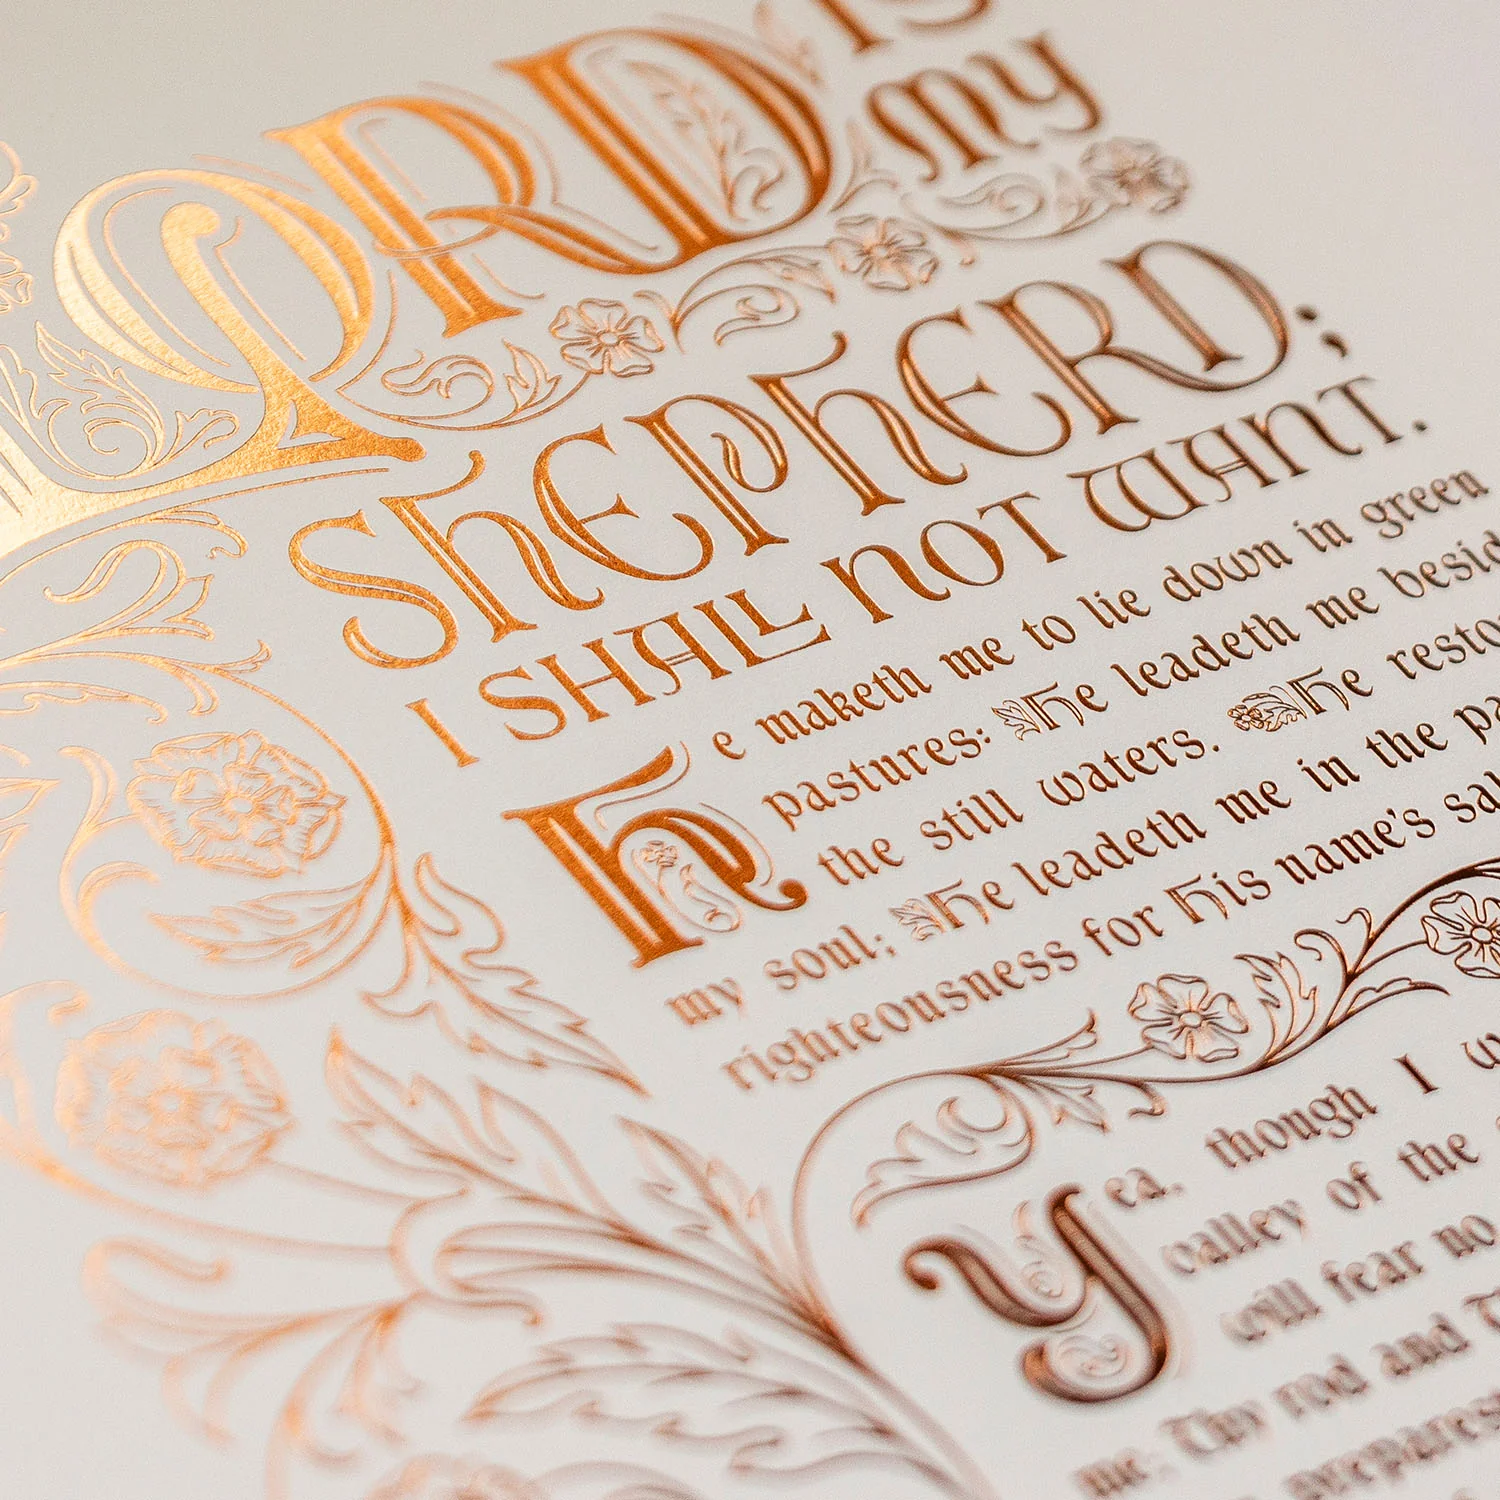 LORD IS
MY
SHEPHERD;
I SHALL NOT WANT.
He maketh me to lie down in green
pastures: He leadeth me besid
the still waters. He resto
my soul; He leadeth me in the pa
righteousness for His name's sa
Yea, though I w
valley of the
will fear no
me: Thy rod and T
prepares